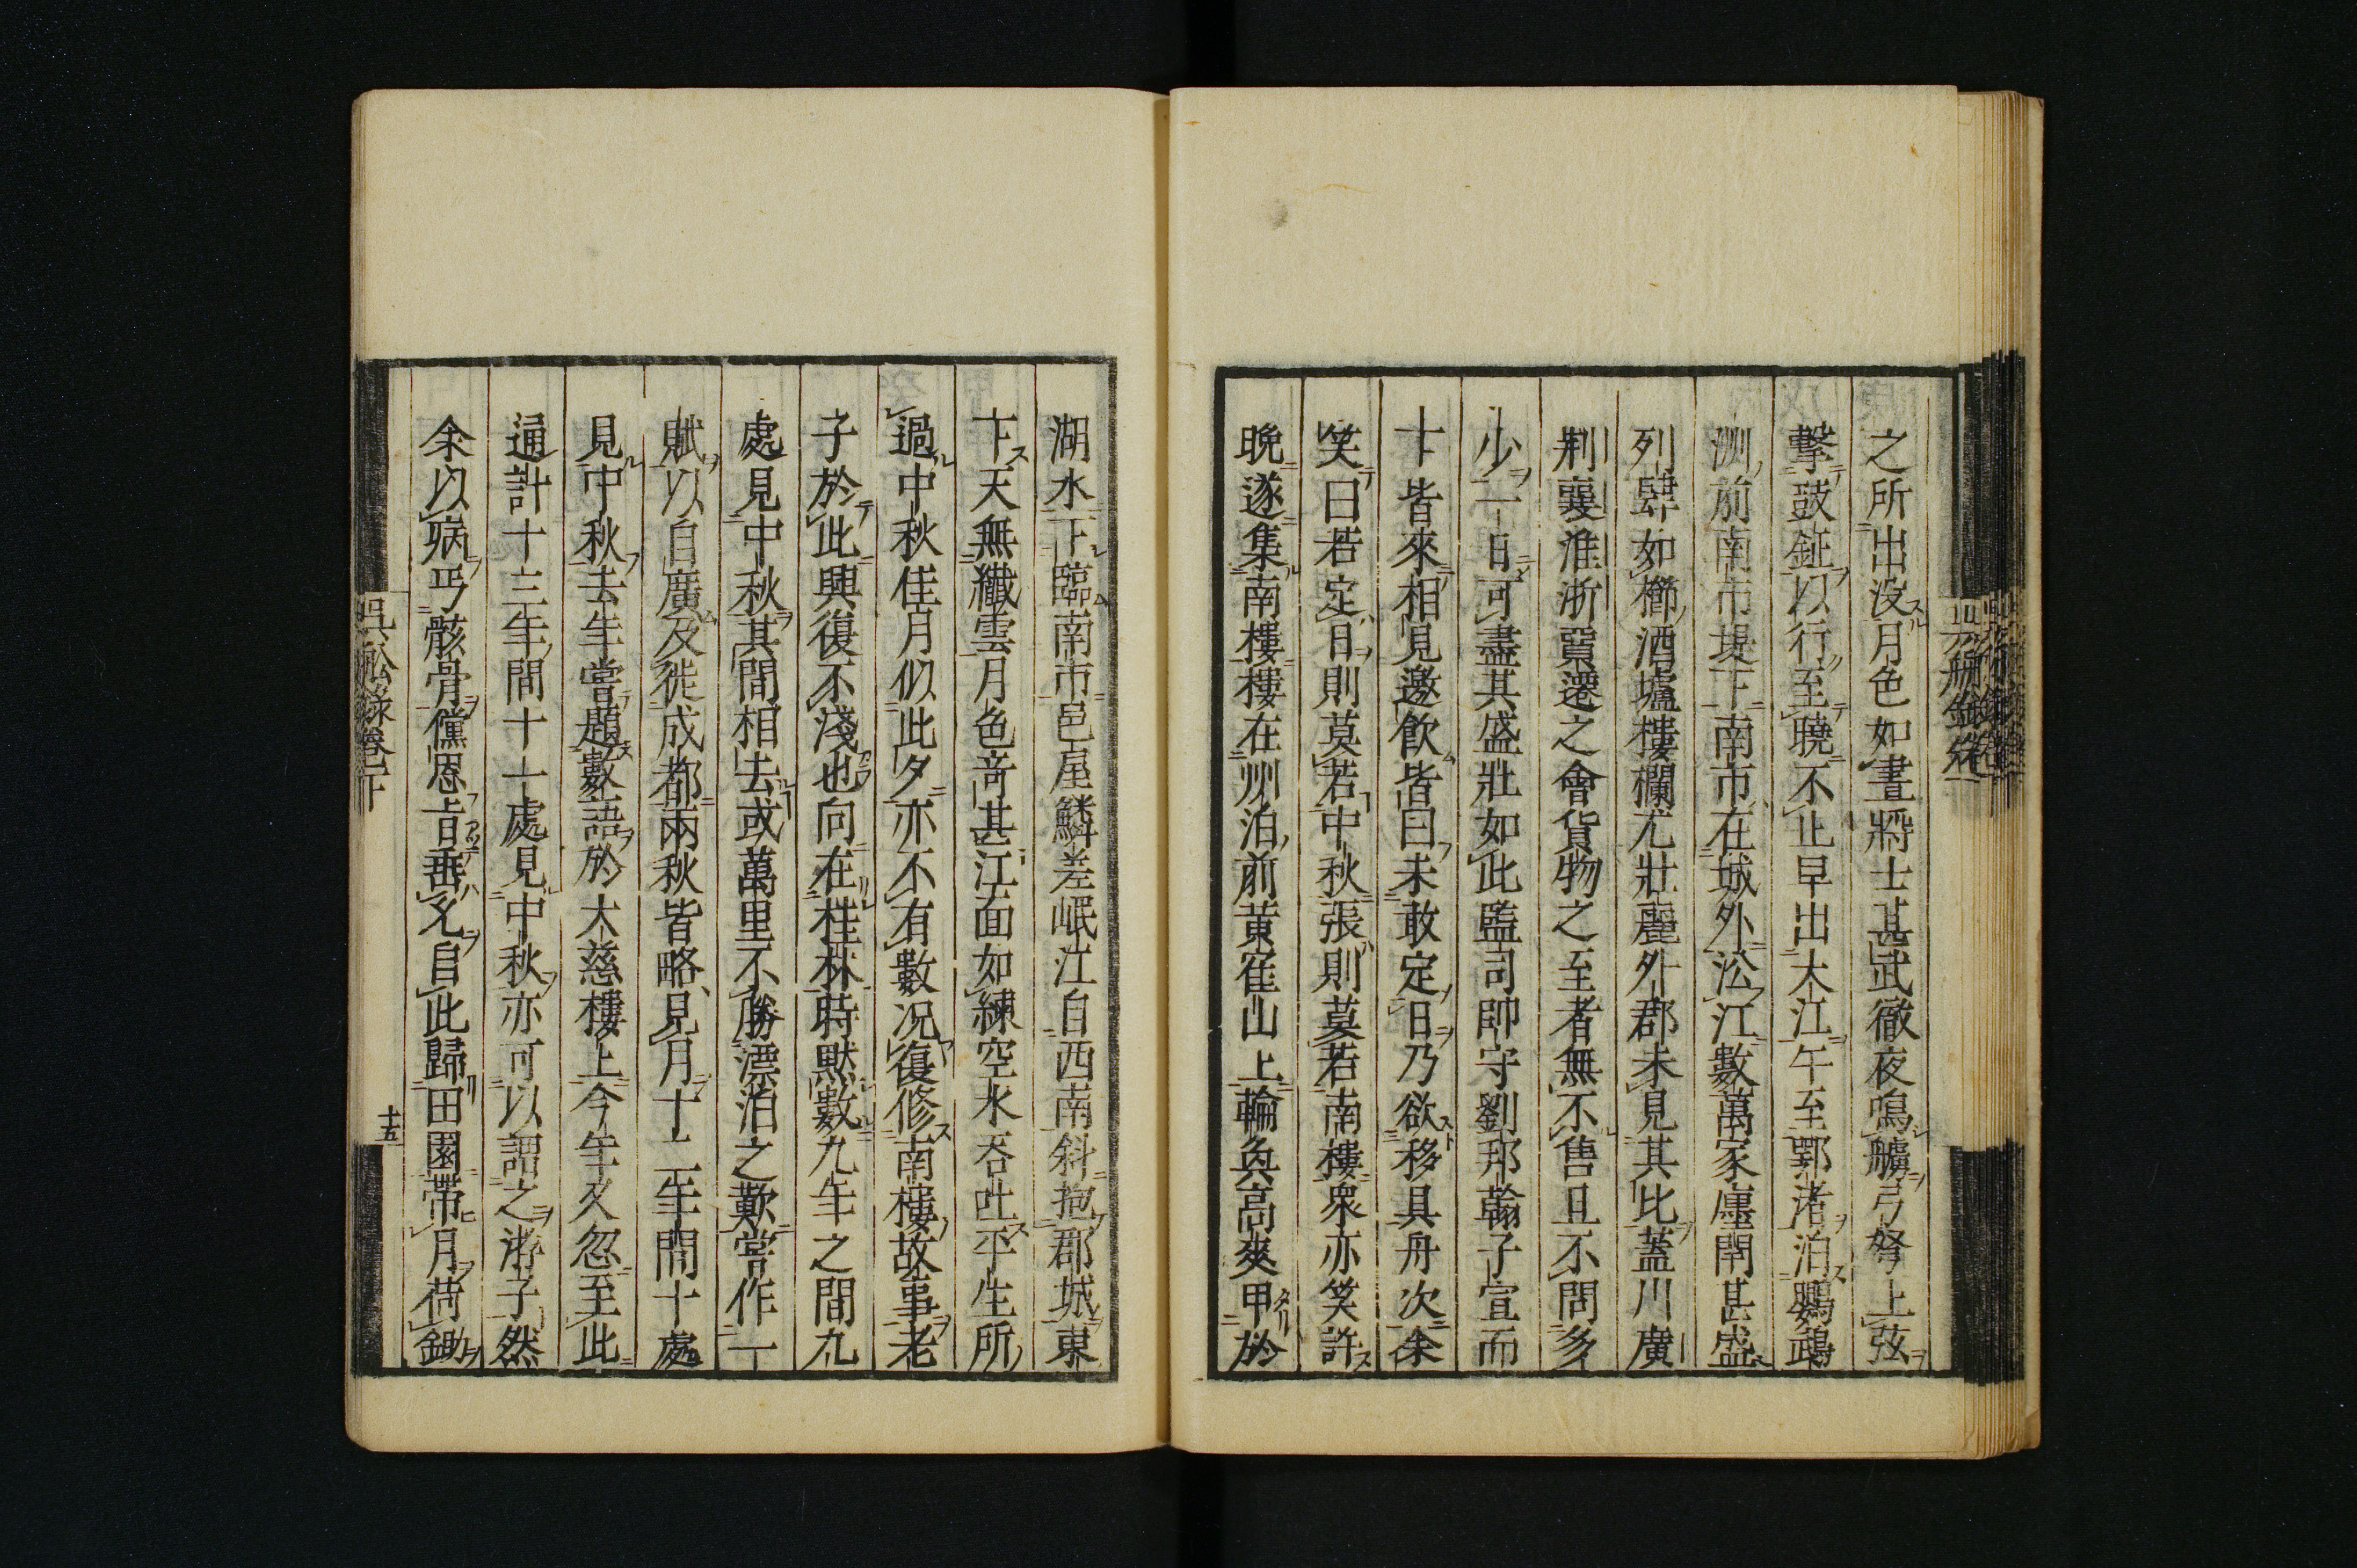 之所出没月色如晝將士甚武徹夜鳴艣弓弩上弦
擊鼓鉦以行至曉不止早出大江午至鄂渚泊鸚鵡
洲前南市堤下南市在城外沿江數萬家廛閈甚盛
列肆如櫛酒壚樓欄尤壯麗外郡未見其比蓋川廣
荆襄淮浙貿遷之會貨物之至者無不售且不問多
少一日可盡其盛壯如此監司帥守劉邦翰子宣而
十皆來相見邀飲皆曰未敢定日乃欲移具舟次余
笑曰若定日則莫若中秋張則莫若南樓衆亦笑許
晚遂集南樓樓在州治前黄崔山上輪奐高爽甲於
湖水下臨南市邑屋鱗差岷江自西南斜抱郡城東
下天無纖雲月色奇甚江面如練空水吞吐平生所
過中秋佳月似此夕亦不有數况復修南樓故事老
子於此興復不淺也向在桂林時默數九年之間九
處見中秋其間相去或萬里不勝漂泊之歎嘗作一
賦以自廣及徙成都兩秋皆略見月十二年間十處
見中秋去年嘗題數語於大慈樓上今年又忽至此
通計十三年間十一處見中秋亦可以謂之游子然
余以病丐骸骨儻恩旨垂允自此歸田園帶月荷鋤
吳船錄卷下
十五